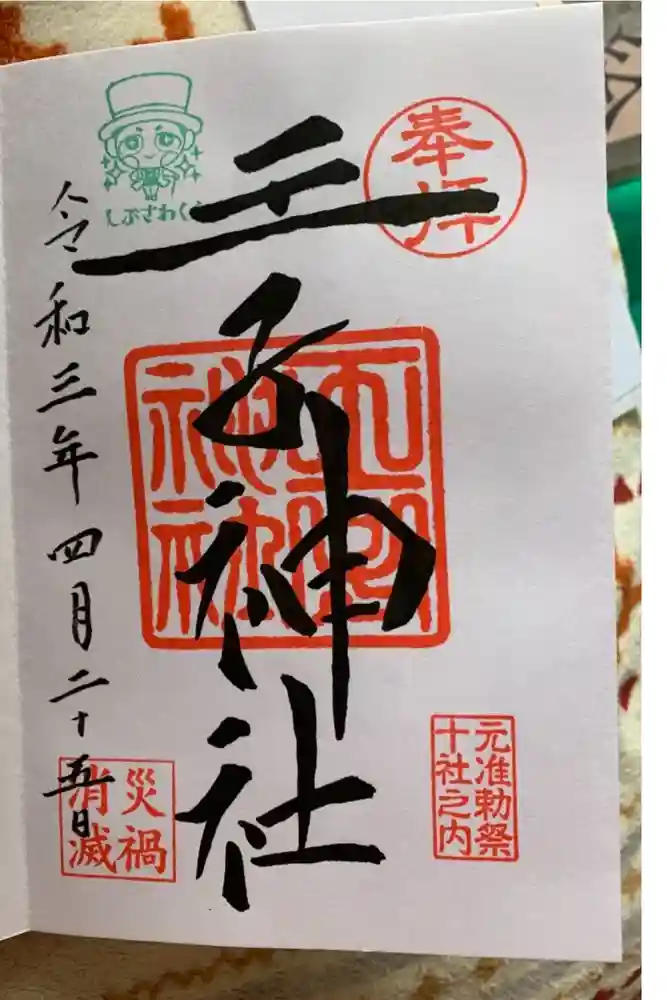 奉拝
元准勅祭
十社之内
王子神社
しぶさわく
令和三年四月二十五日
災禍
消滅